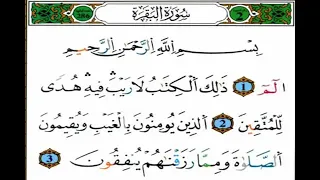 سُورَةُ الْبَقَرَةِ
بِسْمِ اللَّهِ الرَّحْمَٰنِ الرَّحِيمِ
الٓمٓ ۝١ ذَٰلِكَ الْكِتَٰبُ لَا رَيْبَ ۛ فِيهِ ۛ هُدًى
لِّلْمُتَّقِينَ ۝٢ الَّذِينَ يُؤْمِنُونَ بِالْغَيْبِ وَيُقِيمُونَ
الصَّلَوٰةَ وَمِمَّا رَزَقْنَٰهُمْ يُنفِقُونَ ۝٣